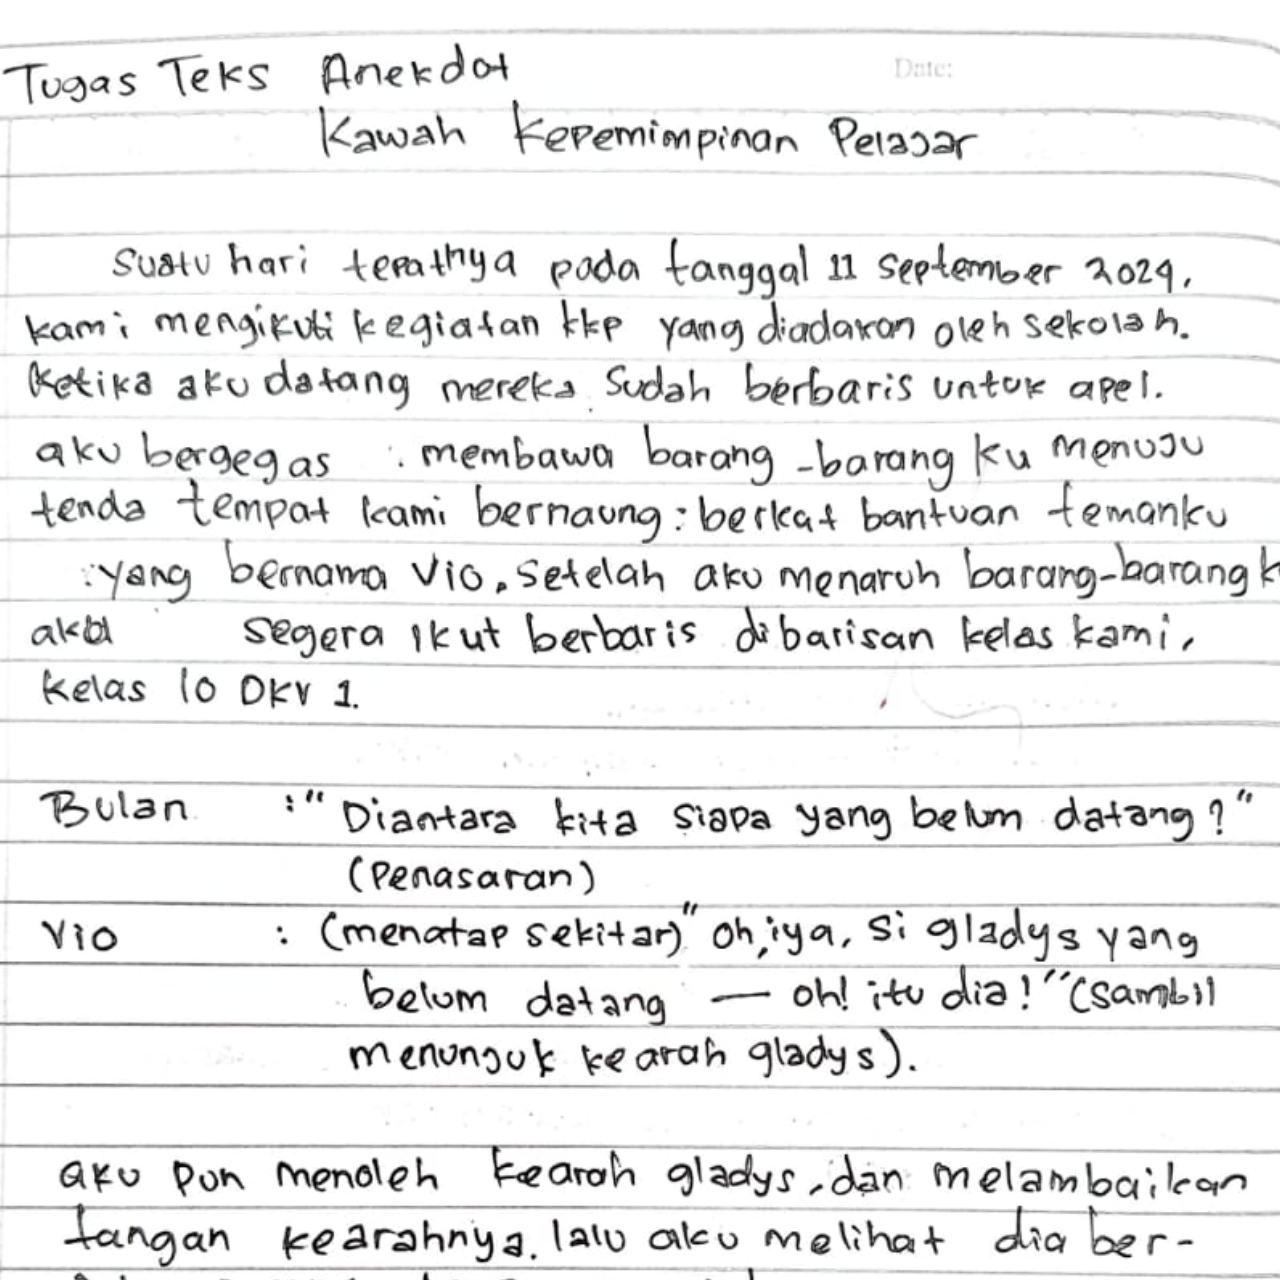 Tugas Teks Anekdot
Date:
Kawah Kepemimpinan Pelajar
Suatu hari tepatnya pada tanggal 11 september 2024,
kami mengikuti kegiatan kkp yang diadakan oleh sekolah.
Ketika aku datang mereka sudah berbaris untuk apel.
aku bergegas membawa barang-barang ku menuju
tenda tempat kami bernaung: berkat bantuan temanku
yang bernama Vio. setelah aku menaruh barang-barang k
aku segera ikut berbaris dibarisan kelas kami,
kelas 10 DKV 1.
Bulan :" Diantara kita siapa yang belum datang?"
(Penasaran)
Vio : (menatap sekitar)" oh,iya, si gladys yang
belum datang — oh! itu dia!"(sambil
menunjuk kearah gladys).
aku pun menoleh kearah gladys, dan melambaikan
tangan kearahnya. lalu aku melihat dia ber-